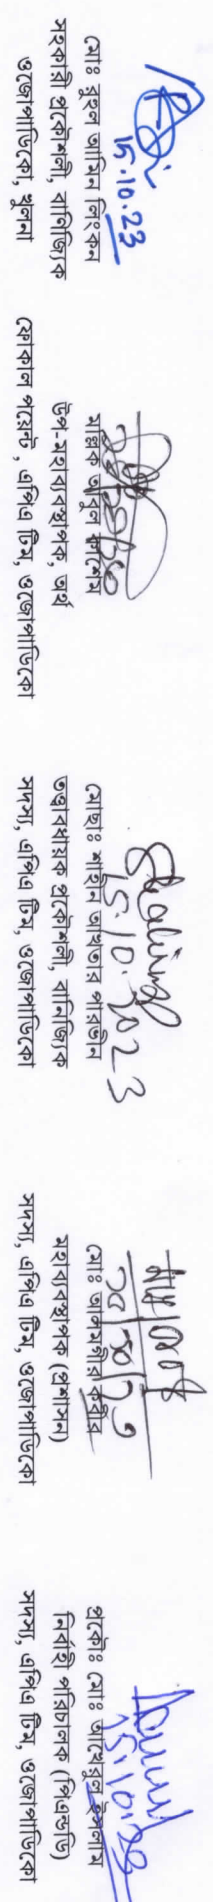 15.10.23
মোঃ রুহুল আমিন লিংকন
সহকারী প্রকৌশলী, বানিজ্যিক
ওজোপাডিকো, খুলনা
মল্লিক আবুল কাশেম
উপ-মহাব্যবস্থাপক, অর্থ
ফোকাল পয়েন্ট, এপিএ টিম, ওজোপাডিকো
15.10.2023
মোছাঃ শাহীন আখতার পারভীন
তত্ত্বাবধায়ক প্রকৌশলী, বানিজ্যিক
সদস্য, এপিএ টিম, ওজোপাডিকো
মোঃ আলমগীর কবীর
মহাব্যবস্থাপক (প্রশাসন)
সদস্য, এপিএ টিম, ওজোপাডিকো
15.10.23
প্রকৌঃ মোঃ
নির্বাহী পরিচালক (পিএন্ডডি)
সদস্য, এপিএ টিম, ওজোপাডিকো